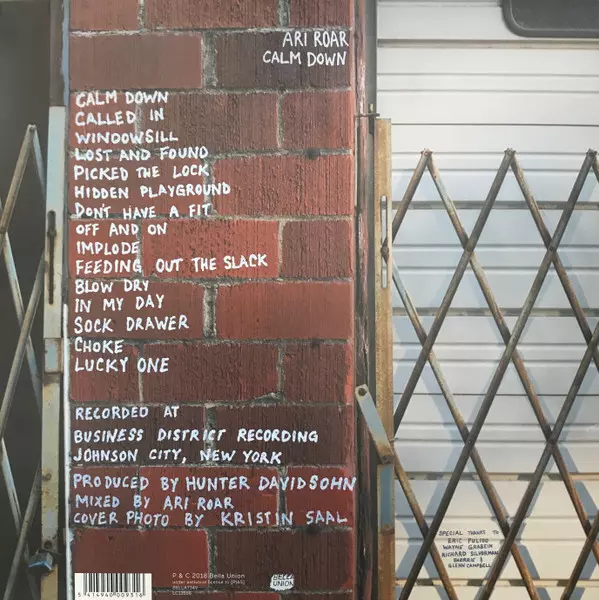 ARI ROAR
CALM DOWN
CALM DOWN
CALLED IN
WINDOWSILL
LOST AND FOUND
PICKED THE LOCK
HIDDEN PLAYGROUND
DON'T HAVE A FIT
OFF AND ON
IMPLODE
FEEDING OUT THE SLACK
BLOW DRY
IN MY DAY
SOCK DRAWER
CHOKE
LUCKY ONE
RECORDED AT
BUSINESS DISTRICT RECORDING
JOHNSON CITY, NEW YORK
PRODUCED BY HUNTER DAVIDSOHN
MIXED BY ARI ROAR
COVER PHOTO BY KRISTIN SAAL
SPECIAL THANKS TO
ERIC PULIDO
WAYNE
RICHARD SILVERMAN
&
GLENN CAMPBELL
P & C 2018 Bella Union
under exclusive license to [PIAS]
BELLA
UNION
5 414940 009316